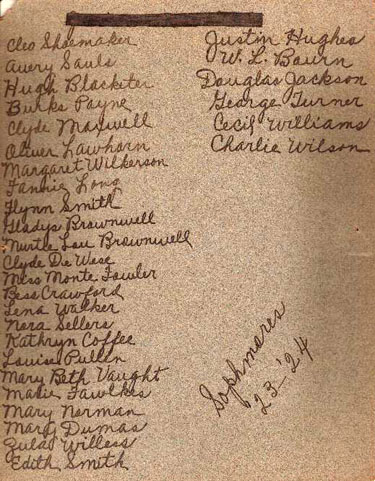 Cleo Shoemaker
Avery Sauls
Hugh Blocketer
Burks Payne
Clyde Maxwell
Oliver Lawhorn
Margaret Wilkerson
Fannie Long
Flynn Smith
Gladys Brownwell
Myrtle Lou Brownwell
Clyde De Wese
Miss Monte Fowler
Bess Crawford
Lena Walker
Nora Sellers
Kathryn Coffee
Louise Pullen
Mary Beth Vaught
Marie Fawlkes
Mary Norman
Mary Dumas
Zula Willess
Edith Smith
Justin Hughes
W. L. Bourn
Douglas Jackson
George Turner
Cecil Williams
Charlie Wilson
Sophmores
'23-'24